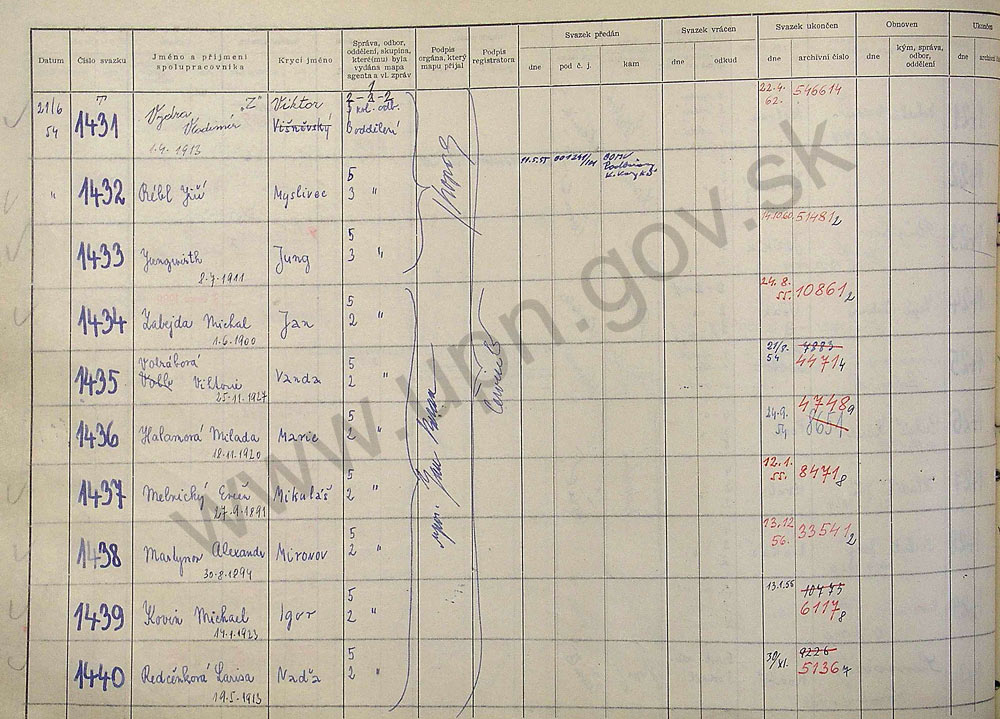 Datum
Číslo svazku
Jméno a příjmení
spolupracovníka
Krycí jméno
Správa, odbor,
oddělení, skupina,
které(mu) byla
vydána mapa
agenta a vl. zpráv
Podpis
orgána, který
mapu přijal
Podpis
registratora
Svazek předán
dne
pod č. j.
kam
Svazek vrácen
dne
odkud
Svazek ukončen
dne
archivní číslo
Obnoven
dne
kým, správa,
odbor,
oddělení
Ukončen
dne
21/6
54
1431
Vydra „Z"
Vladimír
1.4.1913
Viktor
Višněvský
1
2-2-2
kol. odb.
oddělení
22.4.
62.
546614
"
1432
Rébl Jiří
Myslivec
5
3 "
11.5.55
1433
Jungwirth
8-7-1911
Jung
5
3 "
14.10.60
51481 2
1434
Zabejda Michal
1-6-1900
Jan
5
2 "
24.8.
55.
10861 2
1435
Votrábová
25-11-1927
Vanda
5
2 "
21/8.
54
7883
4471 4
1436
Halamová Milada
18.11.1920
Marie
5
2 "
24.9.
54
4748 9
8651
1437
Melnický
27-9-1891
Mikuláš
5
2 "
12.1.
55.
8471 8
1438
Martynov Alexandr
30-8-1894
Mironov
5
2 "
13.12
56.
33541 2
1439
Kovin Michael
14.1.1923
Igor
5
2 "
13.1.55
10775
6117 8
1440
Redčenková Larisa
19.5.1913
Naďa
5
2 "
30/XI.
9226
5136 7
www.upn.gov.sk